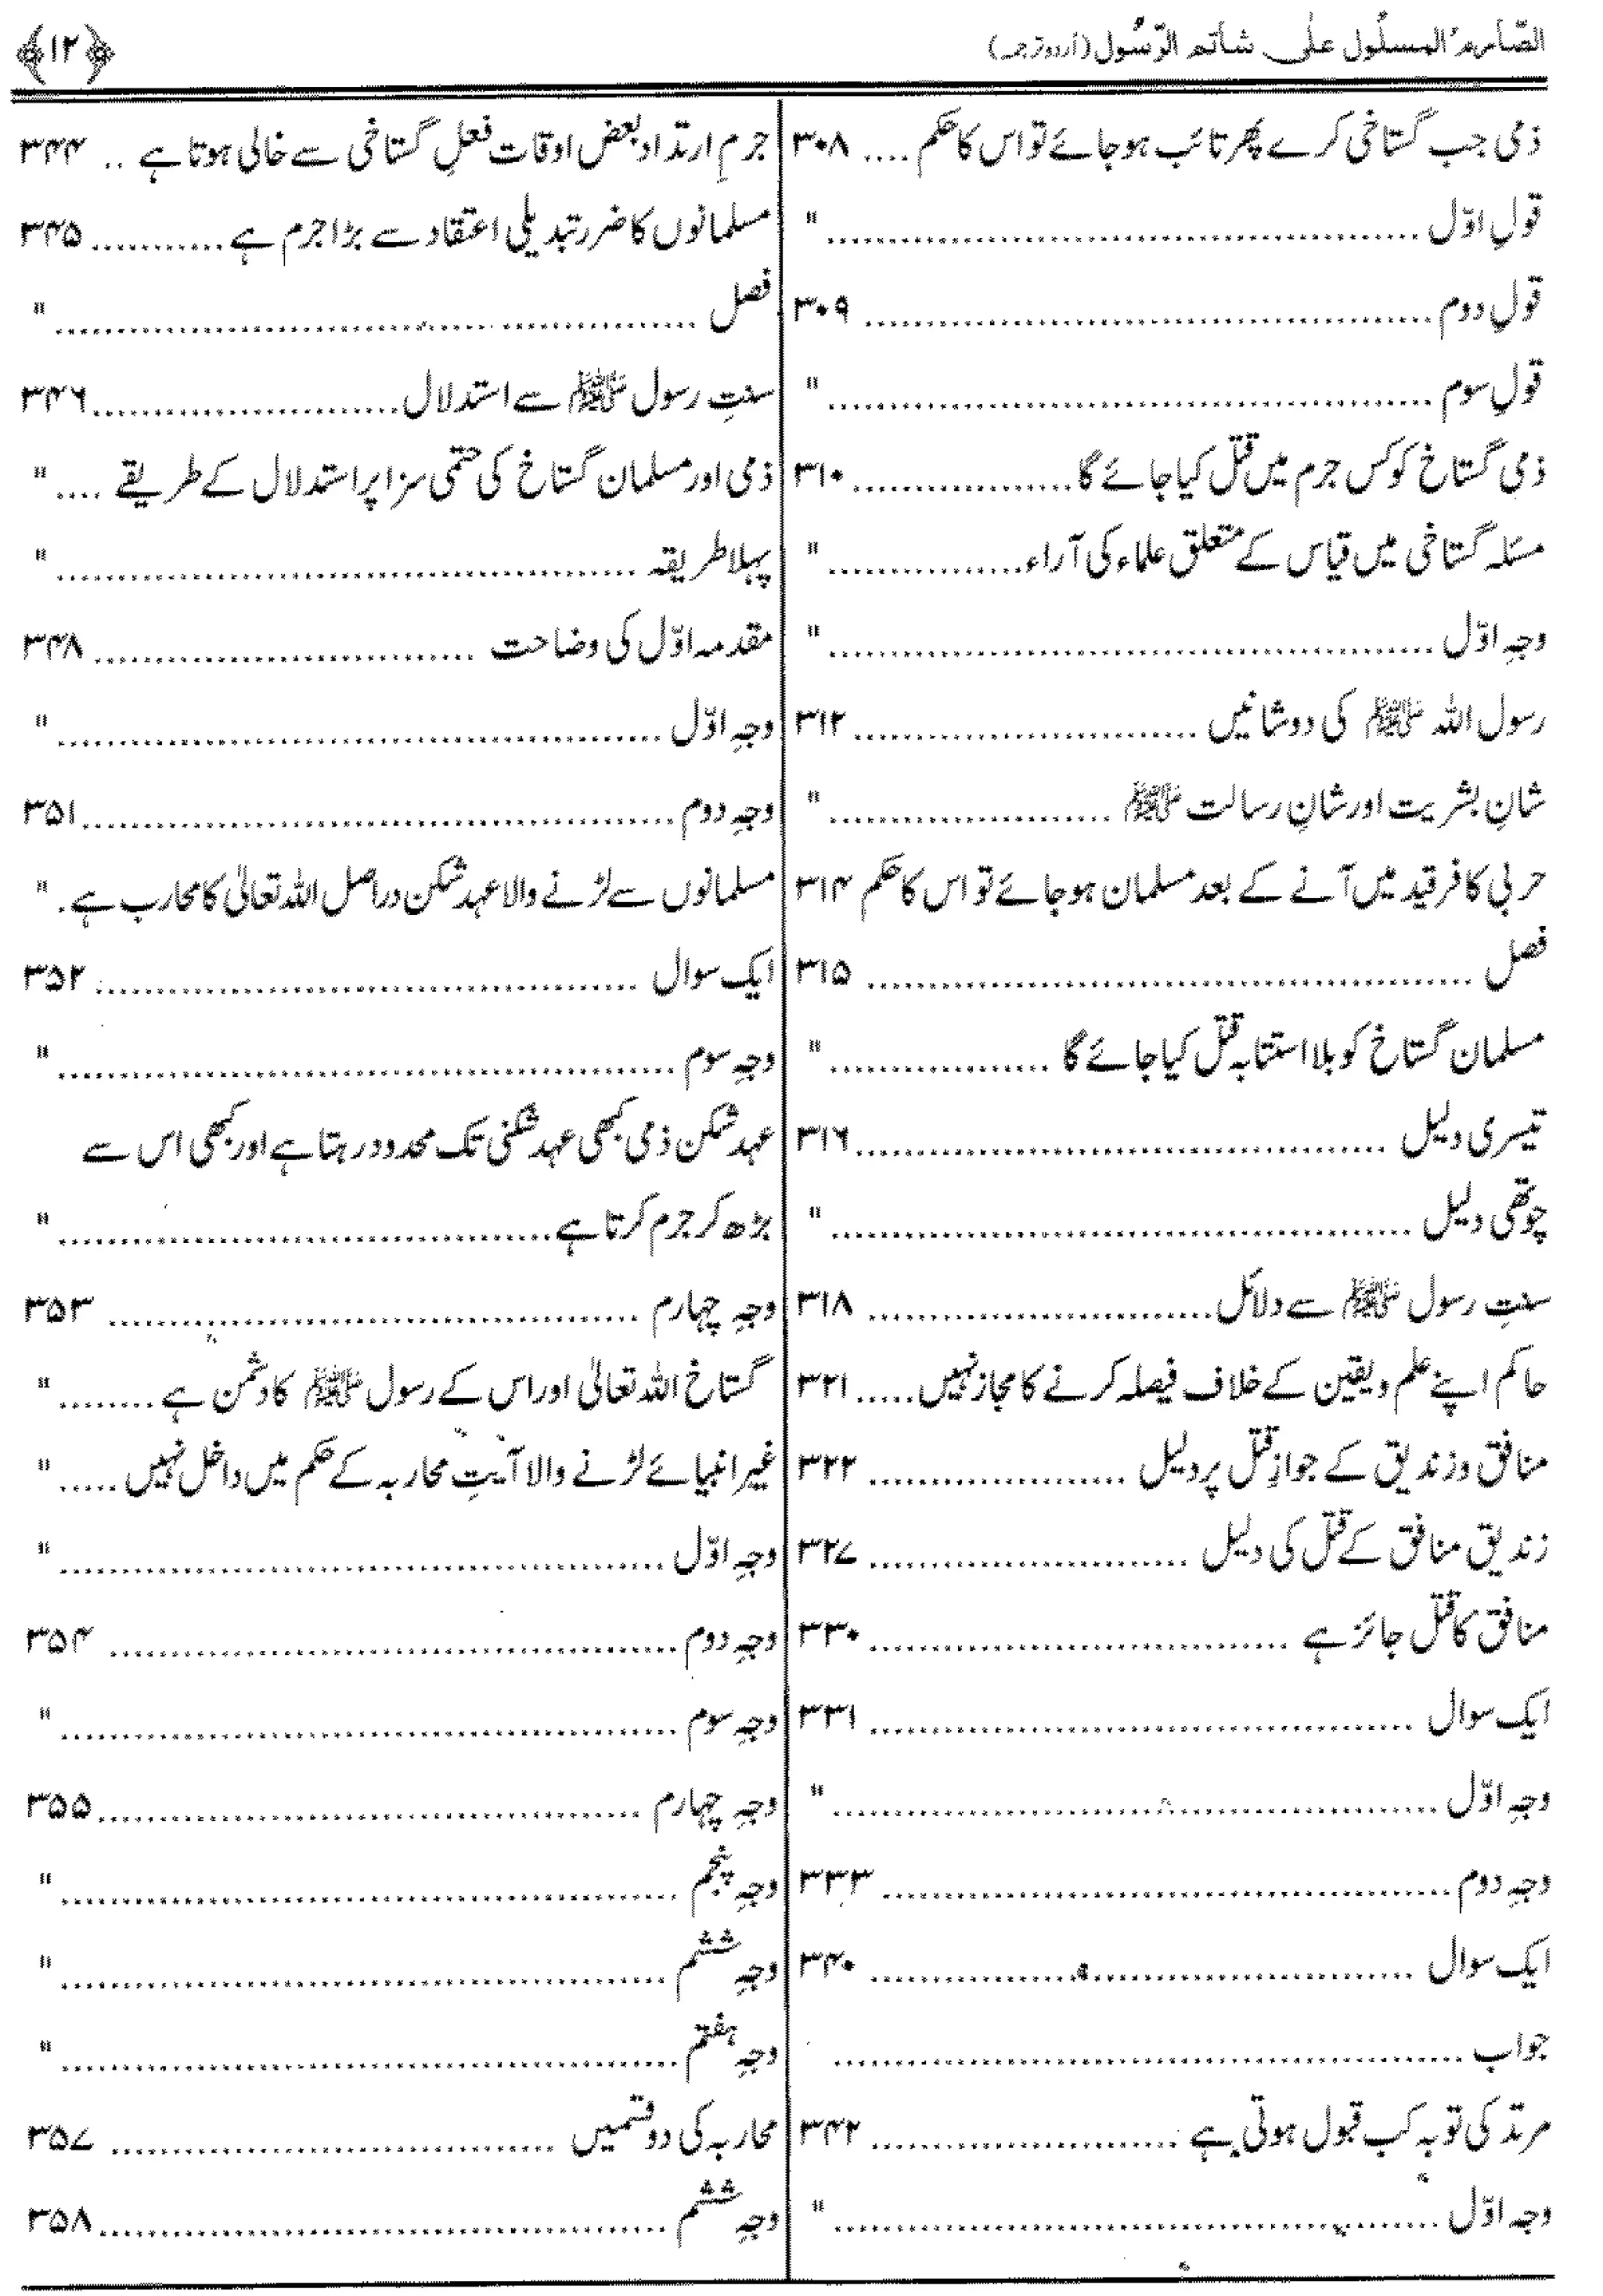 الصّارم المسلُول على شاتم الرّسُول (اُردو ترجمہ)
﴿۱۲﴾
ذمی جب گستاخی کرے پھر تائب ہوجائے تو اس کا حکم .... ۳۰۸
قولِ اوّل .... "
قولِ دوم .... ۳۰۹
قولِ سوم .... "
ذمی گستاخ کو کس جرم میں قتل کیا جائے گا .... ۳۱۰
مسئلہ گستاخی میں قیاس کے متعلق علماء کی آراء .... "
وجہِ اوّل .... "
رسول اللہ ﷺ کی دو شانیں .... ۳۱۲
شانِ بشریت اور شانِ رسالت ﷺ .... "
حربی کافر قید میں آنے کے بعد مسلمان ہوجائے تو اس کا حکم ۳۱۴
فصل .... ۳۱۵
مسلمان گستاخ کو بلا استتابہ قتل کیا جائے گا .... "
تیسری دلیل .... ۳۱۶
چوتھی دلیل .... "
سنتِ رسول ﷺ سے دلائل .... ۳۱۸
حاکم اپنے علم و یقین کے خلاف فیصلہ کرنے کا مجاز نہیں .... ۳۲۱
منافق و زندیق کے جوازِ قتل پر دلیل .... ۳۲۲
زندیق منافق کے قتل کی دلیل .... ۳۲۷
منافق کا قتل جائز ہے .... ۳۳۰
ایک سوال .... ۳۳۱
وجہِ اوّل .... "
وجہِ دوم .... ۳۳۳
ایک سوال .... ۳۴۰
جواب ....
مرتد کی توبہ کب قبول ہوتی ہے .... ۳۴۲
وجہِ اوّل .... "
جرمِ ارتداد بعض اوقات فعلِ گستاخی سے خالی ہوتا ہے .. ۳۴۴
مسلمانوں کا ضرر تبدیلی اعتقاد سے بڑا جرم ہے .... ۳۴۵
فصل .... "
سنتِ رسول ﷺ سے استدلال .... ۳۴۶
ذمی اور مسلمان گستاخ کی حتمی سزا پر استدلال کے طریقے .... "
پہلا طریقہ .... "
مقدمہ اوّل کی وضاحت .... ۳۴۸
وجہِ اوّل .... "
وجہِ دوم .... ۳۵۱
مسلمانوں سے لڑنے والا عہد شکن دراصل اللہ تعالیٰ کا محارب ہے . "
ایک سوال .... ۳۵۲
وجہِ سوم .... "
عہد شکن ذمی کبھی عہد شکنی تک محدود رہتا ہے اور کبھی اس سے
بڑھ کر جرم کرتا ہے .... "
وجہِ چہارم .... ۳۵۳
گستاخ اللہ تعالیٰ اور اس کے رسول ﷺ کا دشمن ہے .... "
غیر انبیاء سے لڑنے والا آیتِ محاربہ کے حکم میں داخل نہیں .... "
وجہِ اوّل .... "
وجہِ دوم .... ۳۵۴
وجہِ سوم .... "
وجہِ چہارم .... ۳۵۵
وجہِ پنجم .... "
وجہِ ششم .... "
وجہِ ہفتم .... "
محاربہ کی دو قسمیں .... ۳۵۷
وجہِ ششم .... ۳۵۸